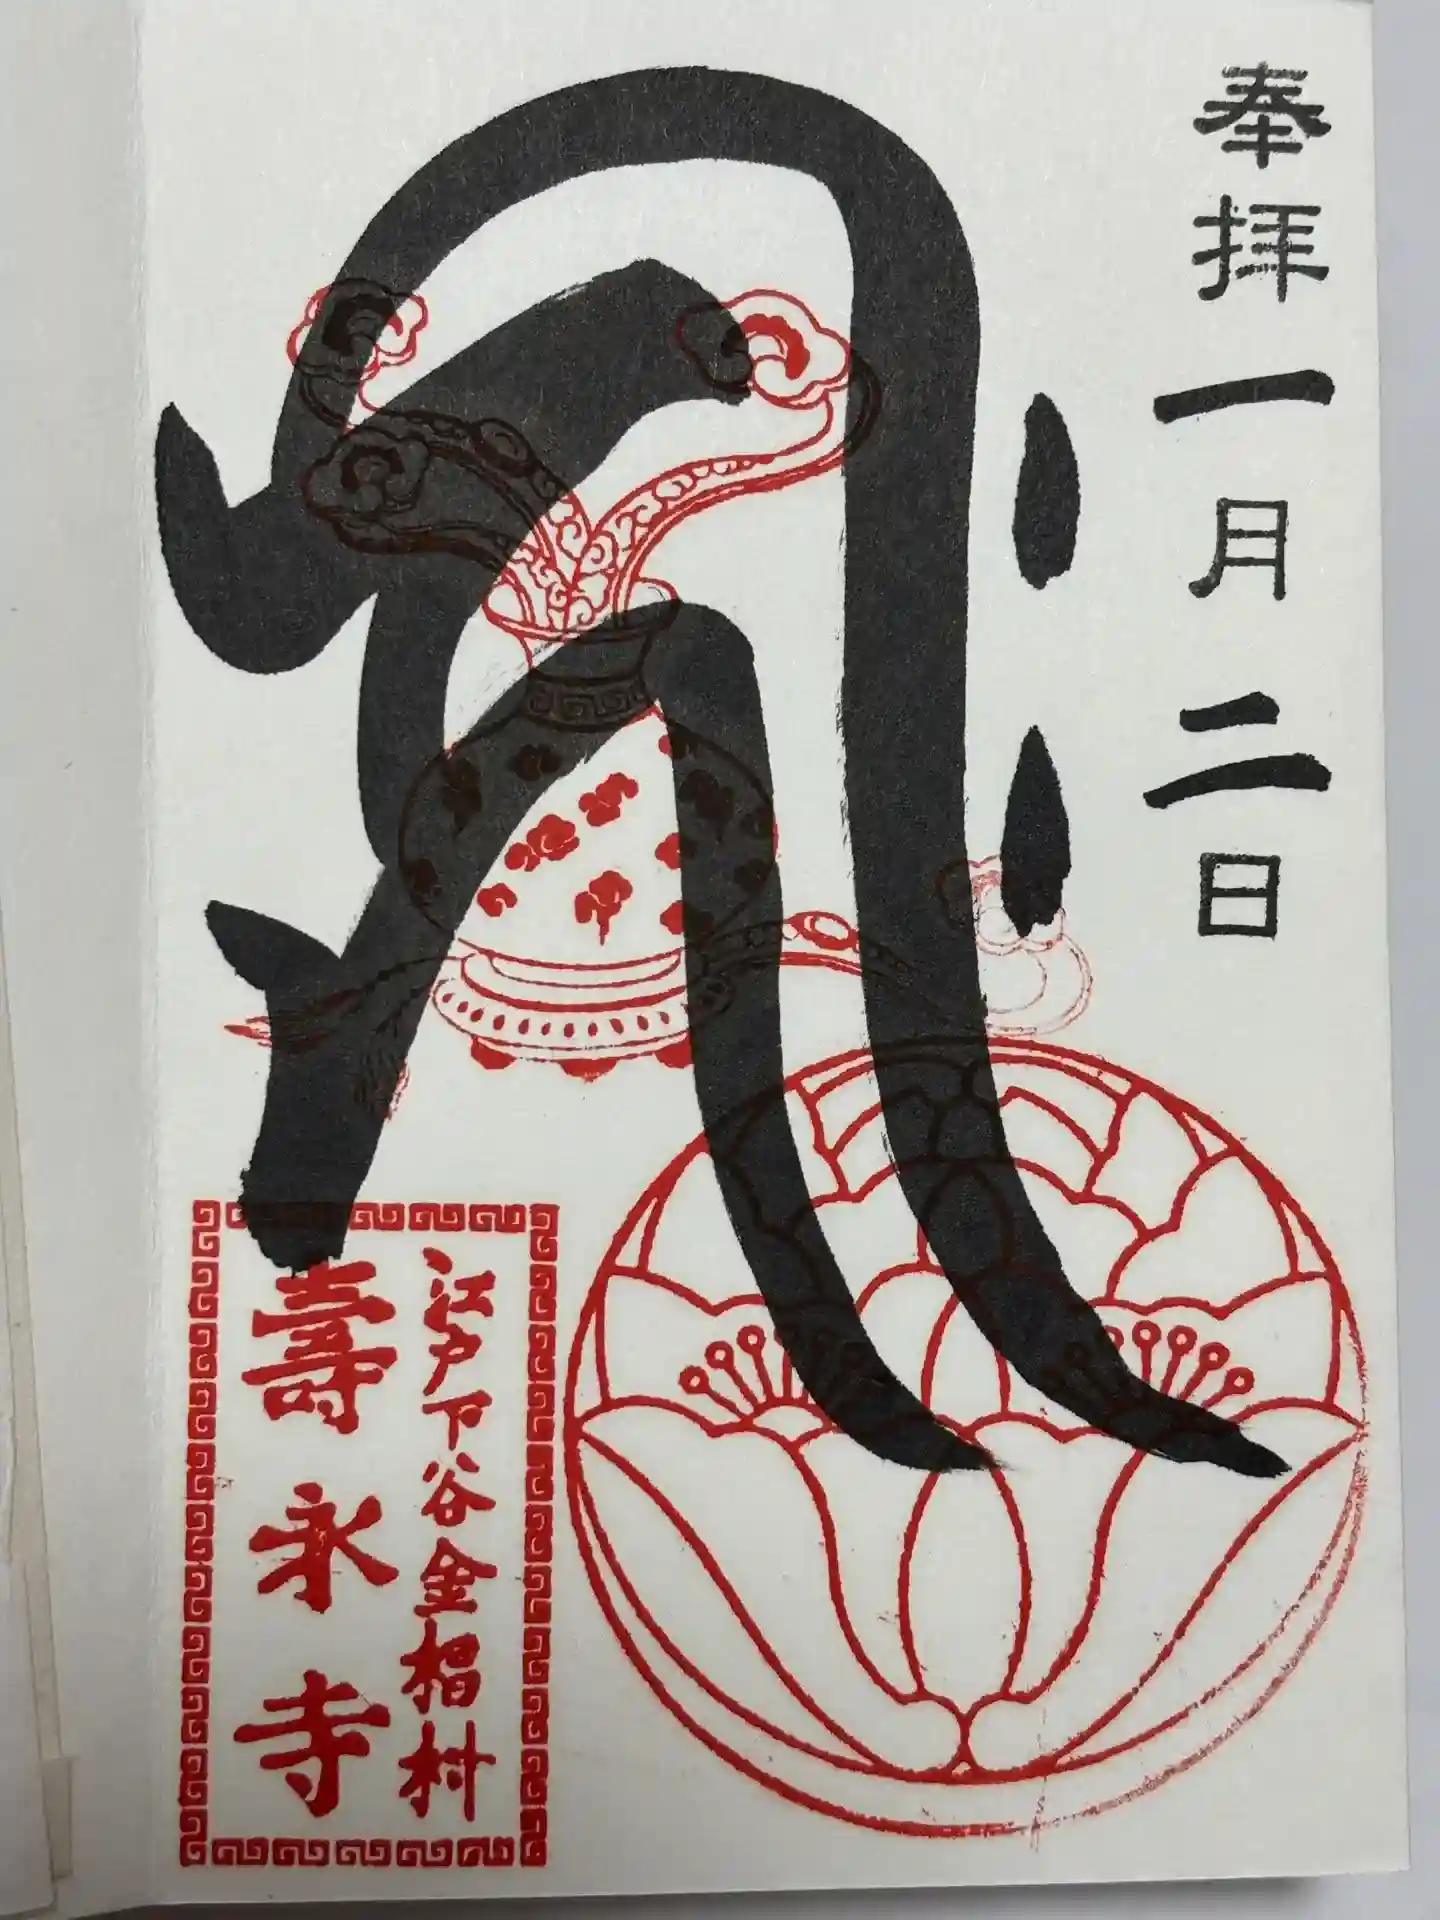 奉拝 一月二日
江戸下谷金椙村
壽永寺